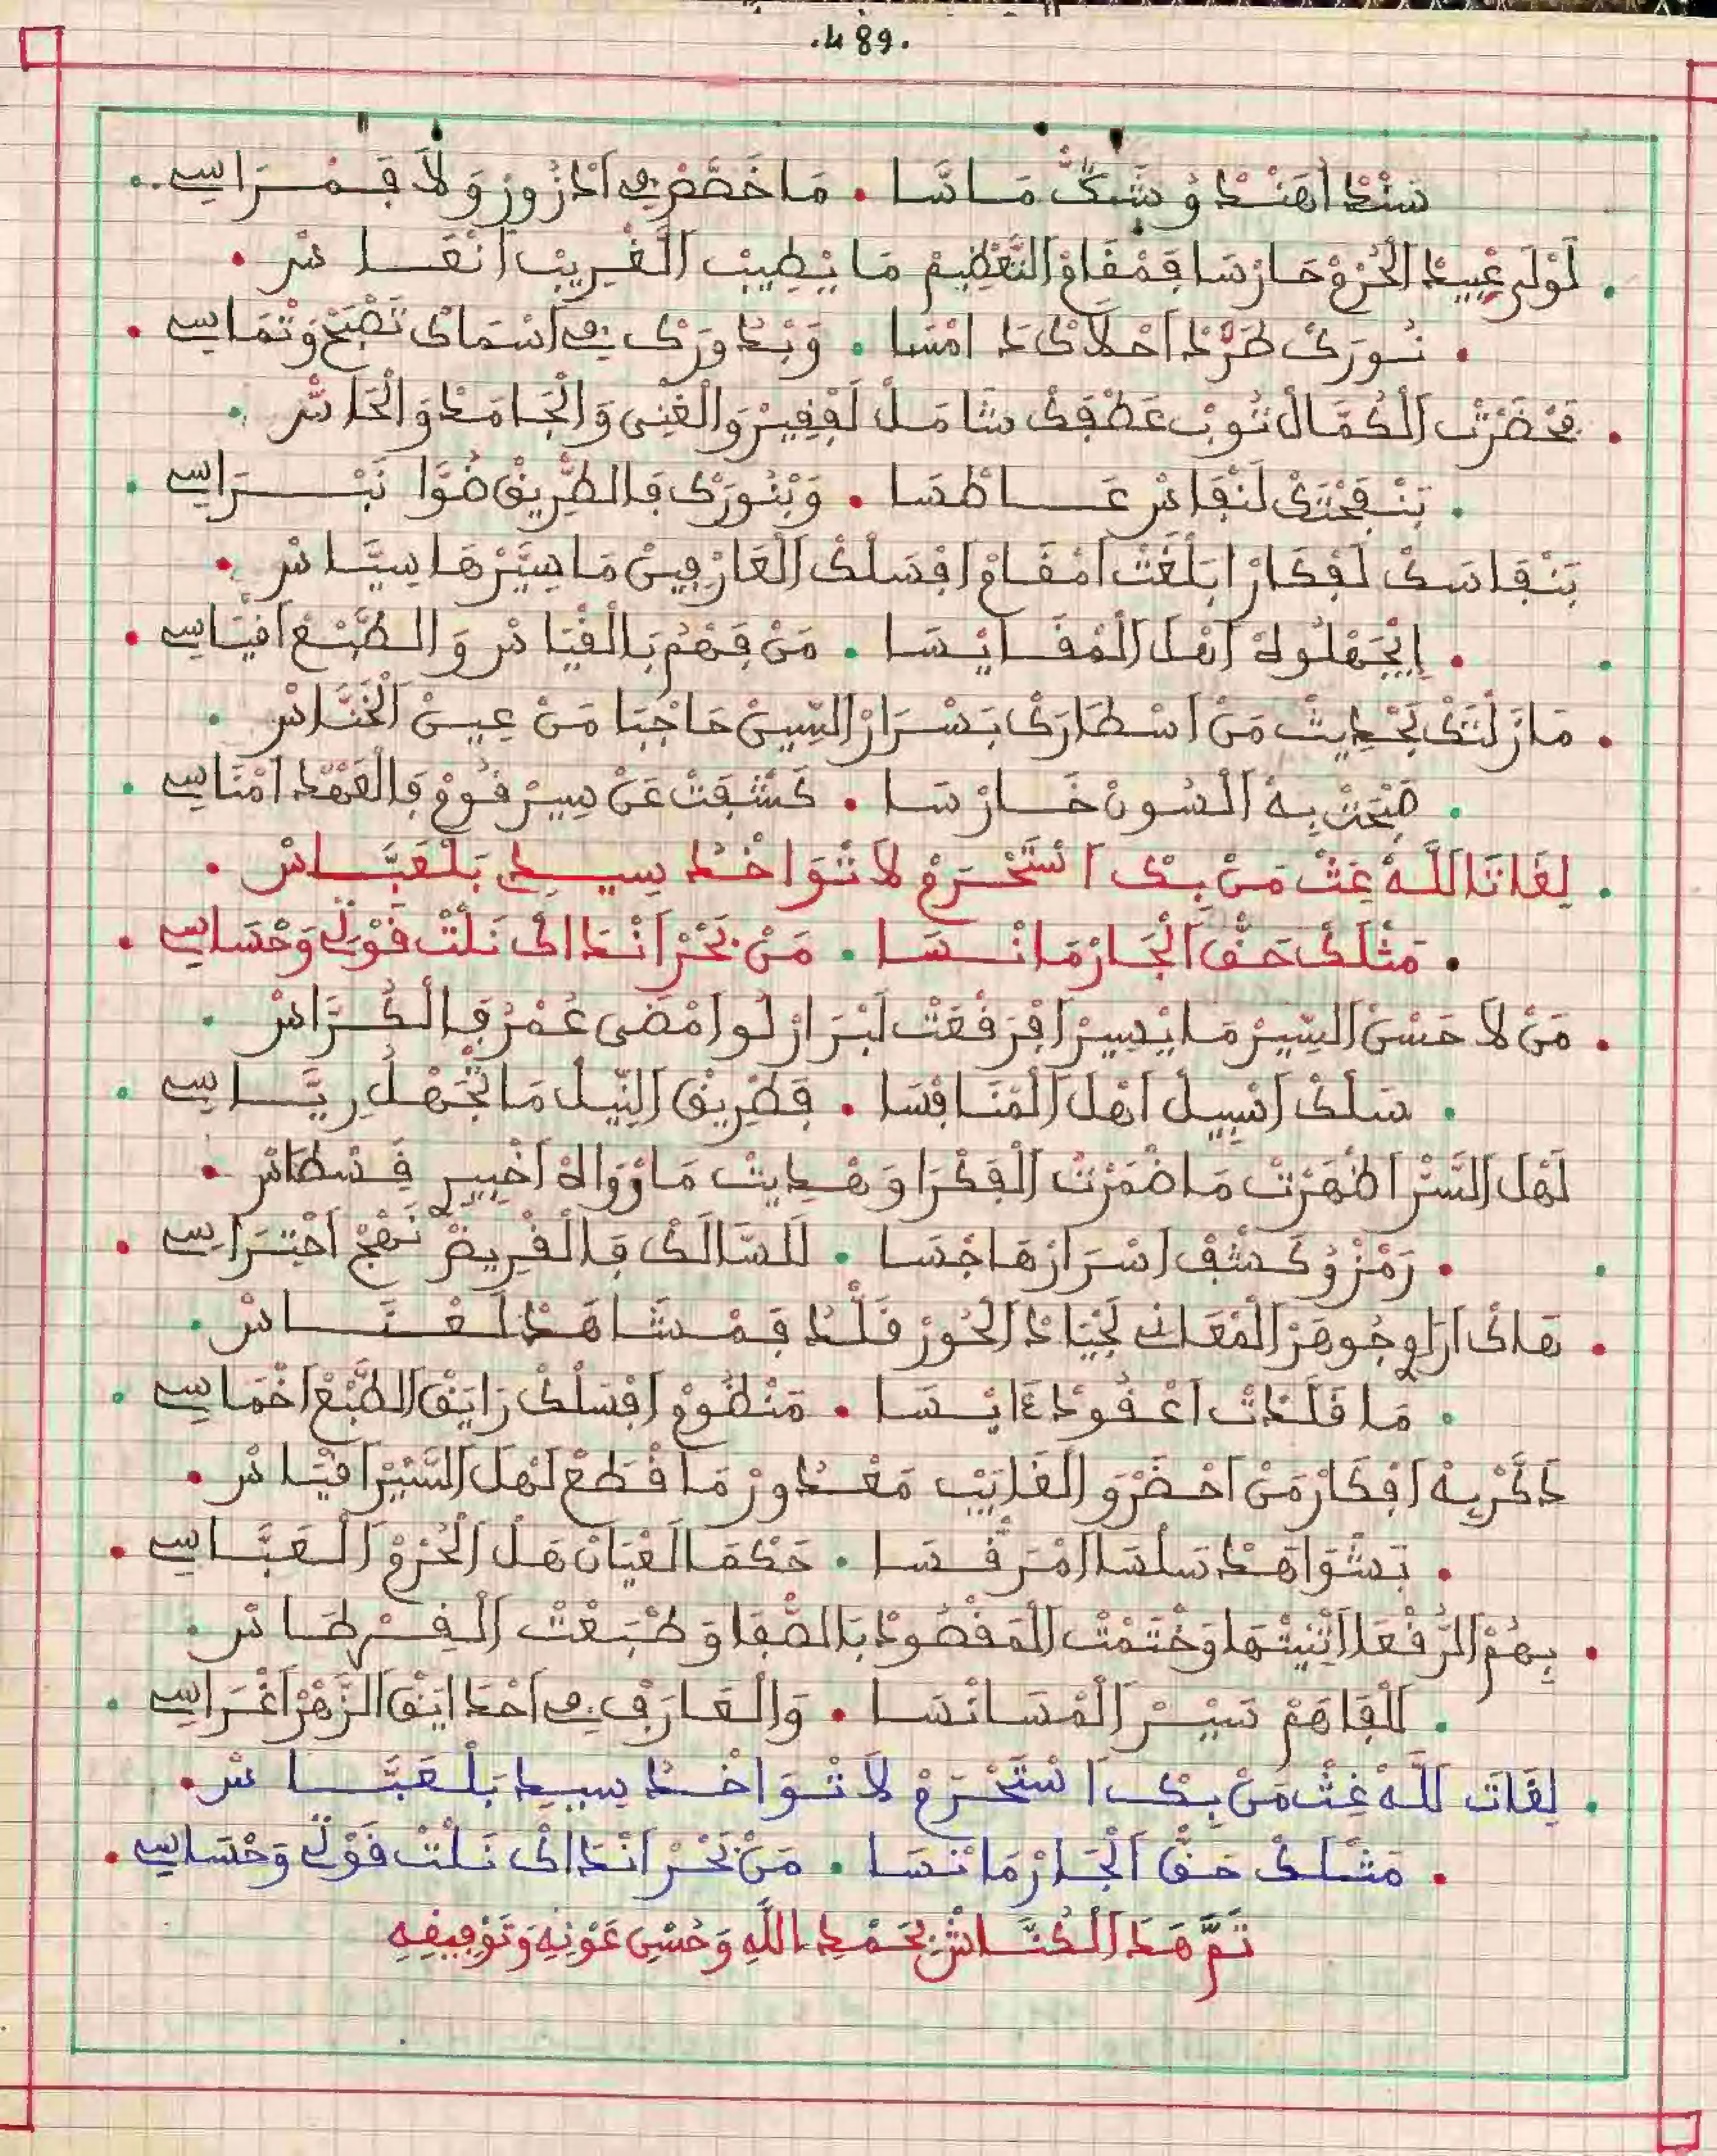 .489.
سَنْدْ اهَنْدْ وُشَيْكّْ مَاسَّا . مَا خَصّْنِي ادْزُورْ وَلاَ فَمْرَاسِي
لَوْلَى عْبِيدْ الْحُرْمْ حَارْسَا فَمْقَامْ التَّعْظِيمْ مَا يْطِيبْ الْغْرِيبْ انْعَاسْ .
نُورَكْ طَرّْدْ احْلاَكْ دَامْسَا . وَبْدُورَكْ فِي اسْمَاكْ تَصْبَحْ وَتْمَاسِي .
فَحْضَرْتْ الْكُمَّالْ ثُوبْ عَطْفَكْ شَامَلْ لَفْقِيرْ وَالْغْنِى وَالْجَامَدْ وَالْحَاسّْ .
بَنْفَحْتَكْ لَنْفَاسْ عَاطْسَا . وَبْنُورَكْ فَالطّْرِيقْ ضُوَّا نَبْرَاسِي .
بَنْفَاسَكْ لَفْكَارْ ابَلْغَتْ امْقَامْ افْسَلْكْ الْعَارْفِينْ مَا سِيَّرْهَا سِيَّاسْ .
إيجَهْلُوهْ اهْلَ الْمْقَايْسَا . مَنْ فَهْهُمْ بَالْقْيَاسْ وَالطَّبْعْ اقْيَاسِي .
مَازَلْتَكْ بَحْدِيثْ مَنْ اسْطَارَكْ بَسْرَارْ السِّينْ حَاجْبَا مَنْ عِينْ الْخَنَّاسْ .
صْبَحْتْ بِهْ السُونْ خَارْسَا . كَشْفَتْ عَنْ سِيرْ قُومْ فَالْعَهْدْ امْنَاسِي .
لِغَاتَا اللَّهْ غِثْ مَنْ بِكْ اسْتَحْرَمْ لاَ تْوَاخَدْ سِيدِي بَلْعَبَّاسْ .
مَثْلَكْ حَقّْ الْجَارْ مَا نْسَا . مَنْ بَحْرْ انْدَاكْ نَلْتْ قَوْلِي وَحْسَاسِي .
مَنْ لاَ حَسْنْ السِّيرْ مَا يْسِيرْ افْرَفْعَتْ لَبْرَارْ لُو امْضَى عُمْرُ فَالْكُرَّاسْ .
سَلْكْ اسْبِيلْ اهْلَ الْمْنَافْسَا . فَطْرِيقْ النِّيلْ مَا تَجْهَلْ رِيَّاسِي .
لَهْلَ السَّرْ اظْهَرْتْ مَا ضْمَرْتْ الْفَكْرَا وَهْدِيتْ مَا رْوَاهْ اخْبِيرْ فَسْطَاسْ .
رَمْزْ وُكَشْفْ اسْرَارْهَا جْسَا . لَلسَّالَكْ فَالْقْرِيضْ نَهْجْ احْتَرَاسِي .
هَاكْ ارَاوِي جُوهَرْ الْمْعَانِي لَجْيَادْ الْحُورْ قَلّْدْ فَمْشَاهَدْ لَعْنَاسْ .
مَا قَلّْدَاتْ اعْقُودْ عَايْسَا . مَنْظُومْ افْسَلْكْ رَايَقْ الطَّبْعْ اخْمَاسِي .
ذَكّْرْ بِهْ افْكَارْ مَنْ احْضَرْ وَالْغَايَبْ مَعْدُورْ مَا قْطَعْ لَهْلَ السَّيْرْ اقْيَاسْ .
بَشْوَاهَدْ سَلْسَا امْرَفْسَا . حَكْمَا لَعْيَانْ هَلْ الْحُرْمْ الْعَبَّاسِي .
بِهُمْ الرَّفْعَا اثْنِيتْهَا وَخْتَمْتْ الْمَقْصُودْ بَالصّْفَا وَطْبَعْتْ الْقِرْطَاسْ .
الْقَاهُمْ سَيْرْ الْمْسَانْسَا . وَالْعَارَفْ فِي احْدَايَقْ الزَّهْرْ اغْرَاسِي .
لِغَاتَ للَّهْ غِثْ مَنْ بِكْ اسْتَحْرَمْ لاَ تْوَاخَدْ سِيدِ بَلْعَبَّاسْ .
مَثْلَكْ حَقّْ الْجَارْ مَا نْسَا . مَنْ بَحْرْ انْدَاكْ نَلْتْ قَوْلِي وَحْسَاسِي .
تَمَّ هَدَ الْكُنَّاشْ بِحَمْدِ اللَّهِ وَحُسْنِ عَوْنِهِ وَتَوْفِيقِهِ